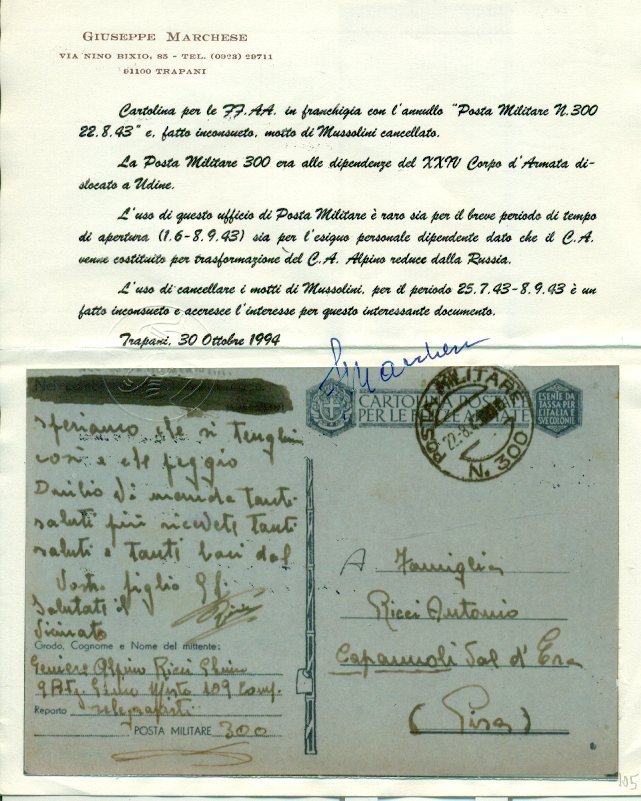 GIUSEPPE MARCHESE
VIA NINO BIXIO, 85 - TEL. (0923) 29711
91100 TRAPANI
Cartolina per le FF.AA. in franchigia con l'annullo "Posta Militare N.300
22.8.43" e, fatto inconsueto, motto di Mussolini cancellato.
La Posta Militare 300 era alle dipendenze del XXIV Corpo d'Armata di-
slocato a Udine.
L'uso di questo ufficio di Posta Militare è raro sia per il breve periodo di tempo
di apertura (1.6-8.9.43) sia per l'esiguo personale dipendente dato che il C.A.
venne costituito per trasformazione del C.A. Alpino reduce dalla Russia.
L'uso di cancellare i motti di Mussolini, per il periodo 25.7.43-8.9.43 è un
fatto inconsueto e accresce l'interesse per questo interessante documento.
Trapani, 30 Ottobre 1994
Marchese
CARTOLINA POSTALE
PER LE FORZE ARMATE
ESENTE DA
TASSA PER
L'ITALIA E
SUE COLONIE
POSTA MILITARE
22.8.
N. 300
speriamo che si
così e che peggio
Danilo vi manda tanti
saluti più ricevete tanti
saluti e tanti baci dal
Vostro figlio
Salutati il
Vicinato
Grado, Cognome e Nome del mittente:
Geniere Alpino Ricci
9 Btg. Genio Misto 109 Comp.
Reparto telegrafisti
POSTA MILITARE 300
A Famiglia
Ricci Antonio
Capannoli Val d'Era
(Pisa)
105